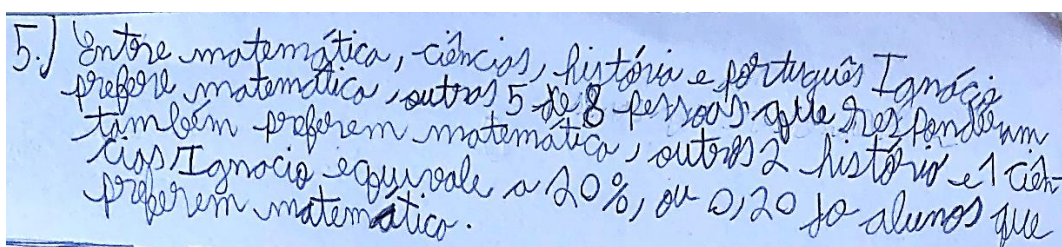 5.) Entre matemática, ciências, história e português Ignácio
prefere matemática, outras 5 de 8 pessoas que responderam
também preferem matemática, outros 2 história e 1 ciên-
cias Ignacio equivale a 20%, ou 0,20 do alunos que
preferem matemática.